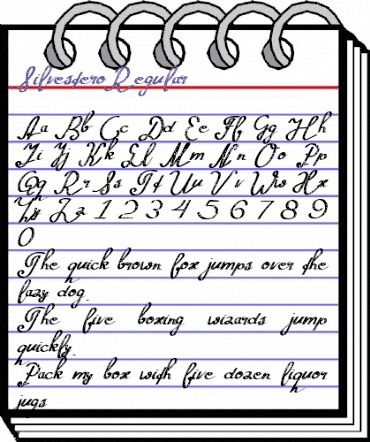 Silvestero Regular
Aa Bb Cc Dd Ee Ff Gg Hh
Ii Jj Kk Ll Mm Nn Oo Pp
Qq Rr Ss Tt Uu Vv Ww Xx
Yy Zz 1 2 3 4 5 6 7 8 9
0
The quick brown fox jumps over the
lazy dog.
The five boxing wizards jump
quickly.
Pack my box with five dozen liquor
jugs